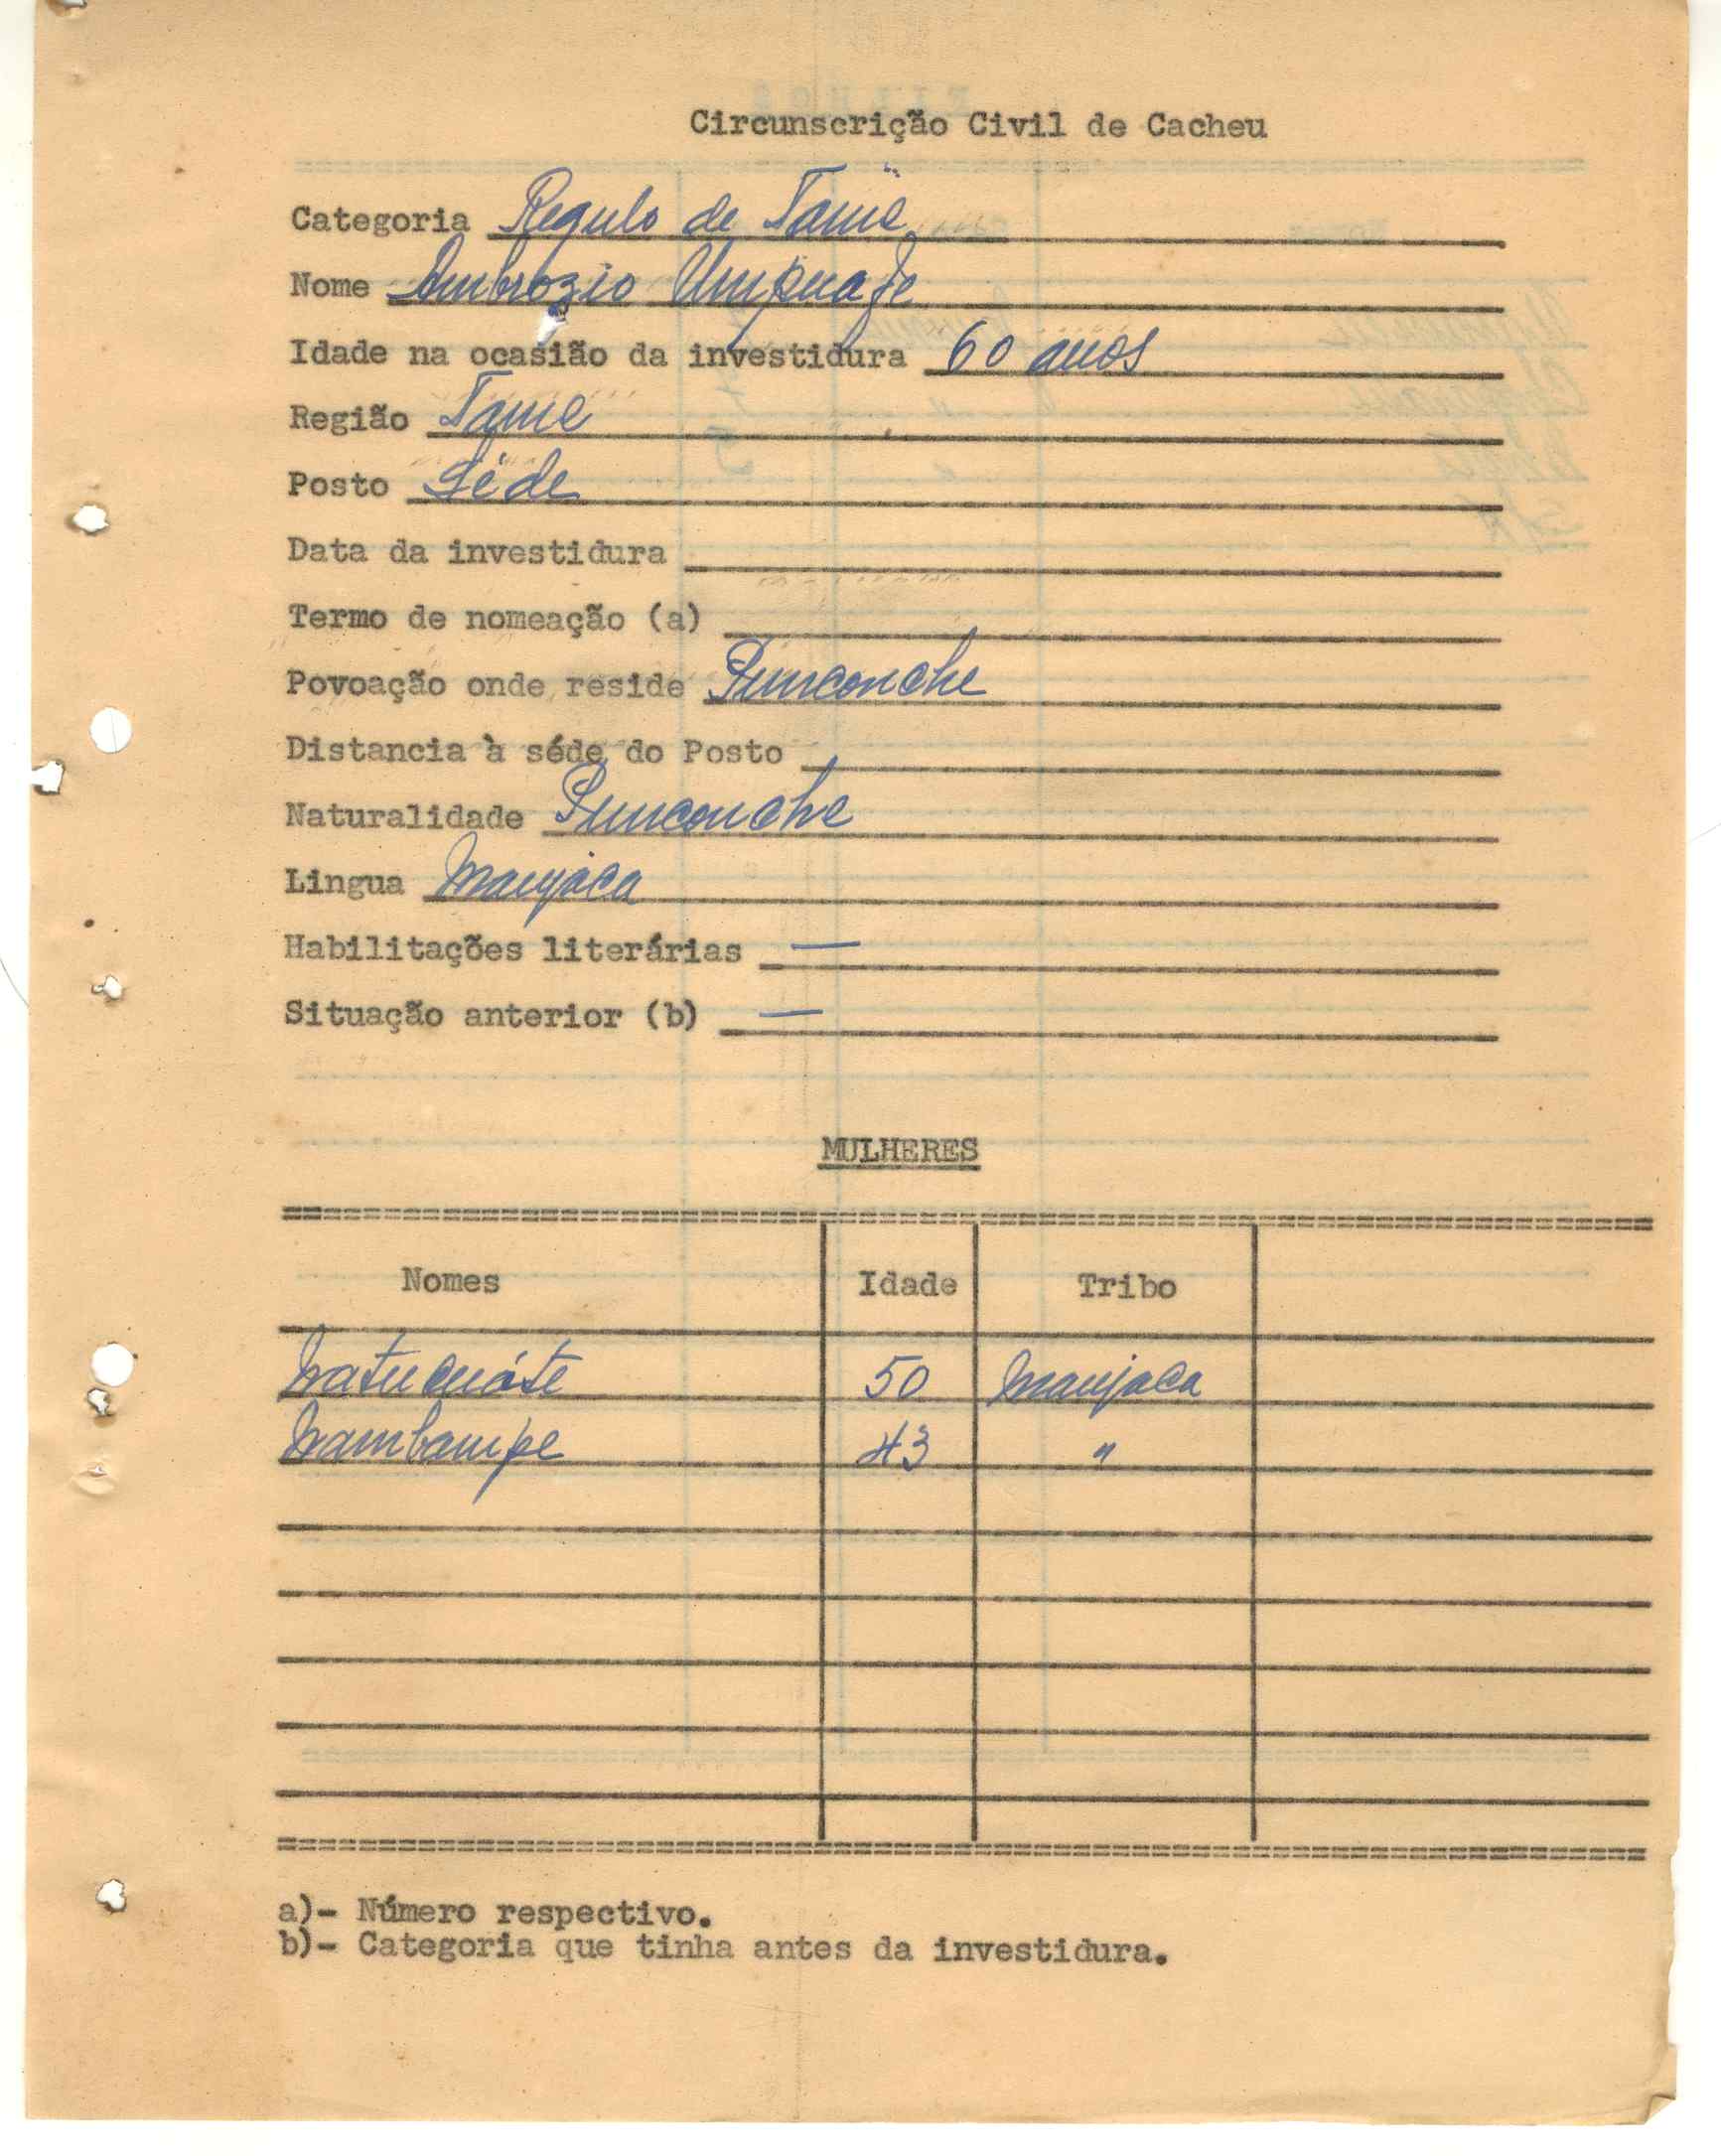 Circunscrição Civil de Cacheu
Categoria Regulo de Tame
Nome Ambrozio
Idade na ocasião da investidura 60 anos
Região Tame
Posto Séde
Data da investidura
Termo de nomeação (a)
Povoação onde reside
Distancia à séde do Posto
Naturalidade
Lingua Manjaca
Habilitações literárias —
Situação anterior (b) —
MULHERES
Nomes Idade Tribo
50 Manjaca
Nambampe 43 "
a)- Número respectivo.
b)- Categoria que tinha antes da investidura.